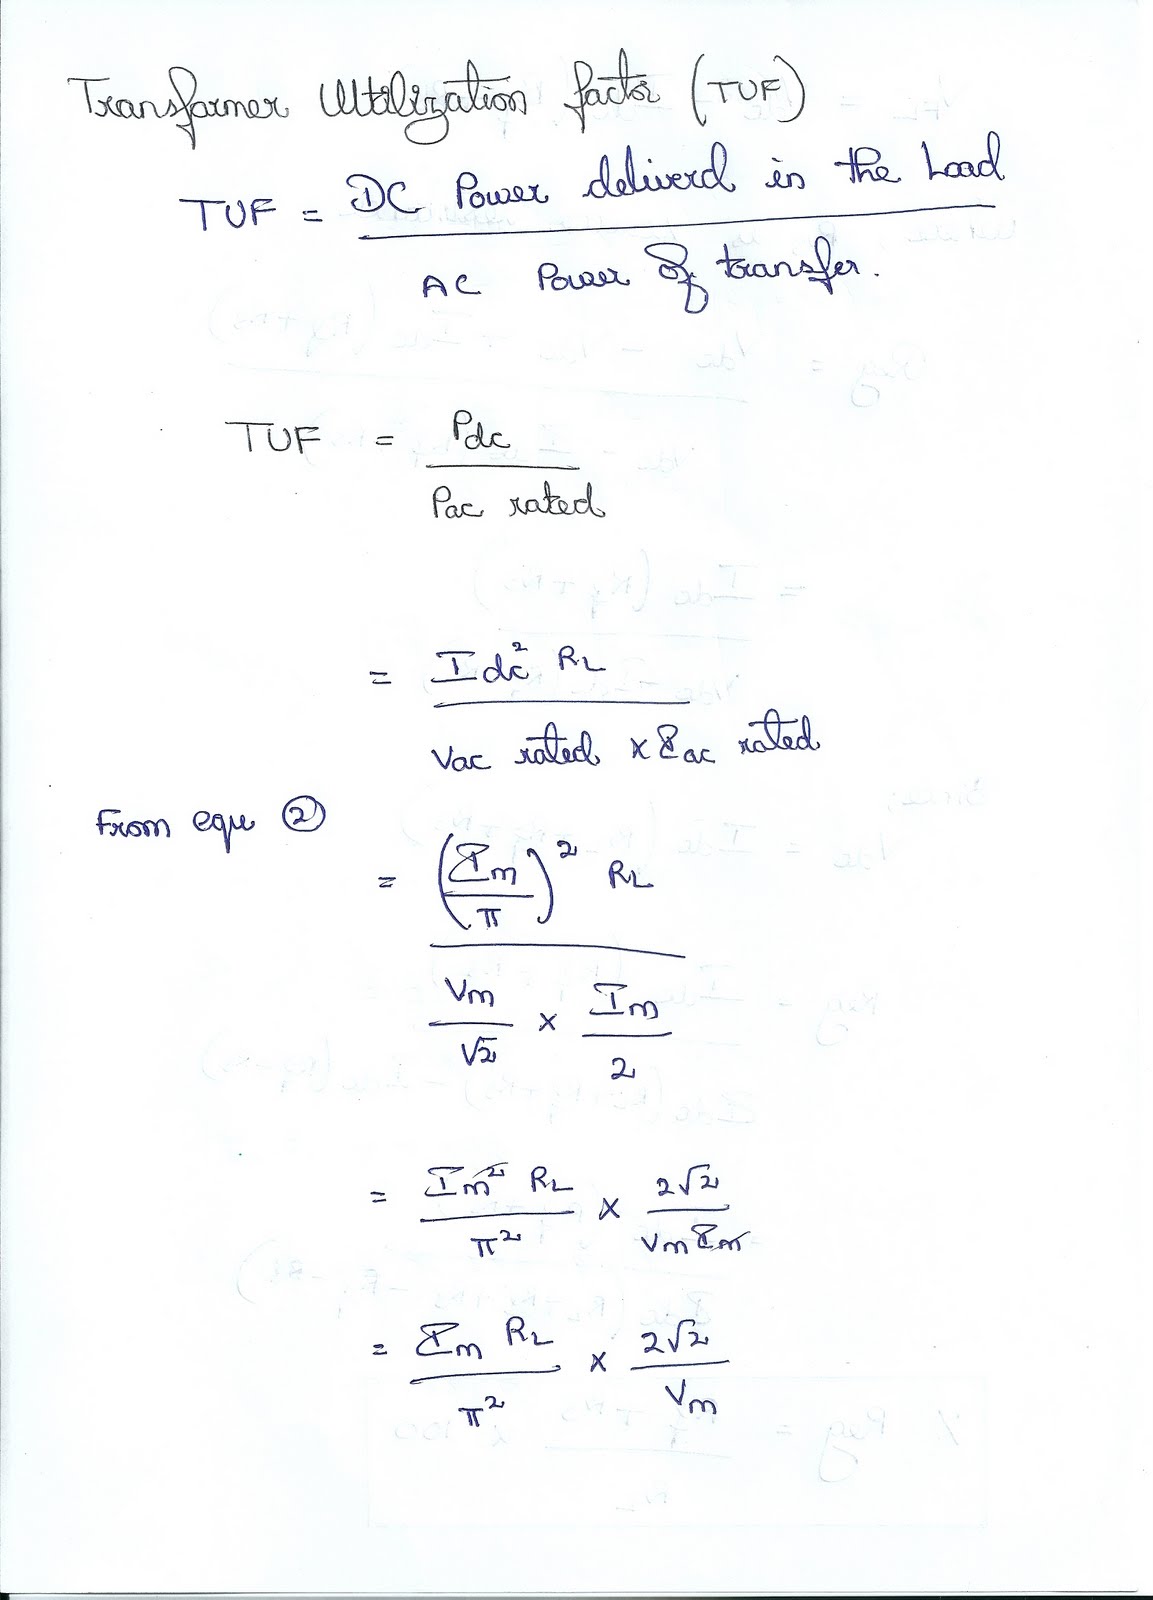 Transformer Utilization factor (TUF)
TUF = DC Power deliverd in the Load
AC Power of transfer.
TUF = Pdc
Pac rated
= Idc² RL
Vac rated × Iac rated
From equ ②
= (Im/π)² RL
Vm/√2 × Im/2
= Im² RL/π² × 2√2/Vm Im
= Im RL/π² × 2√2/Vm